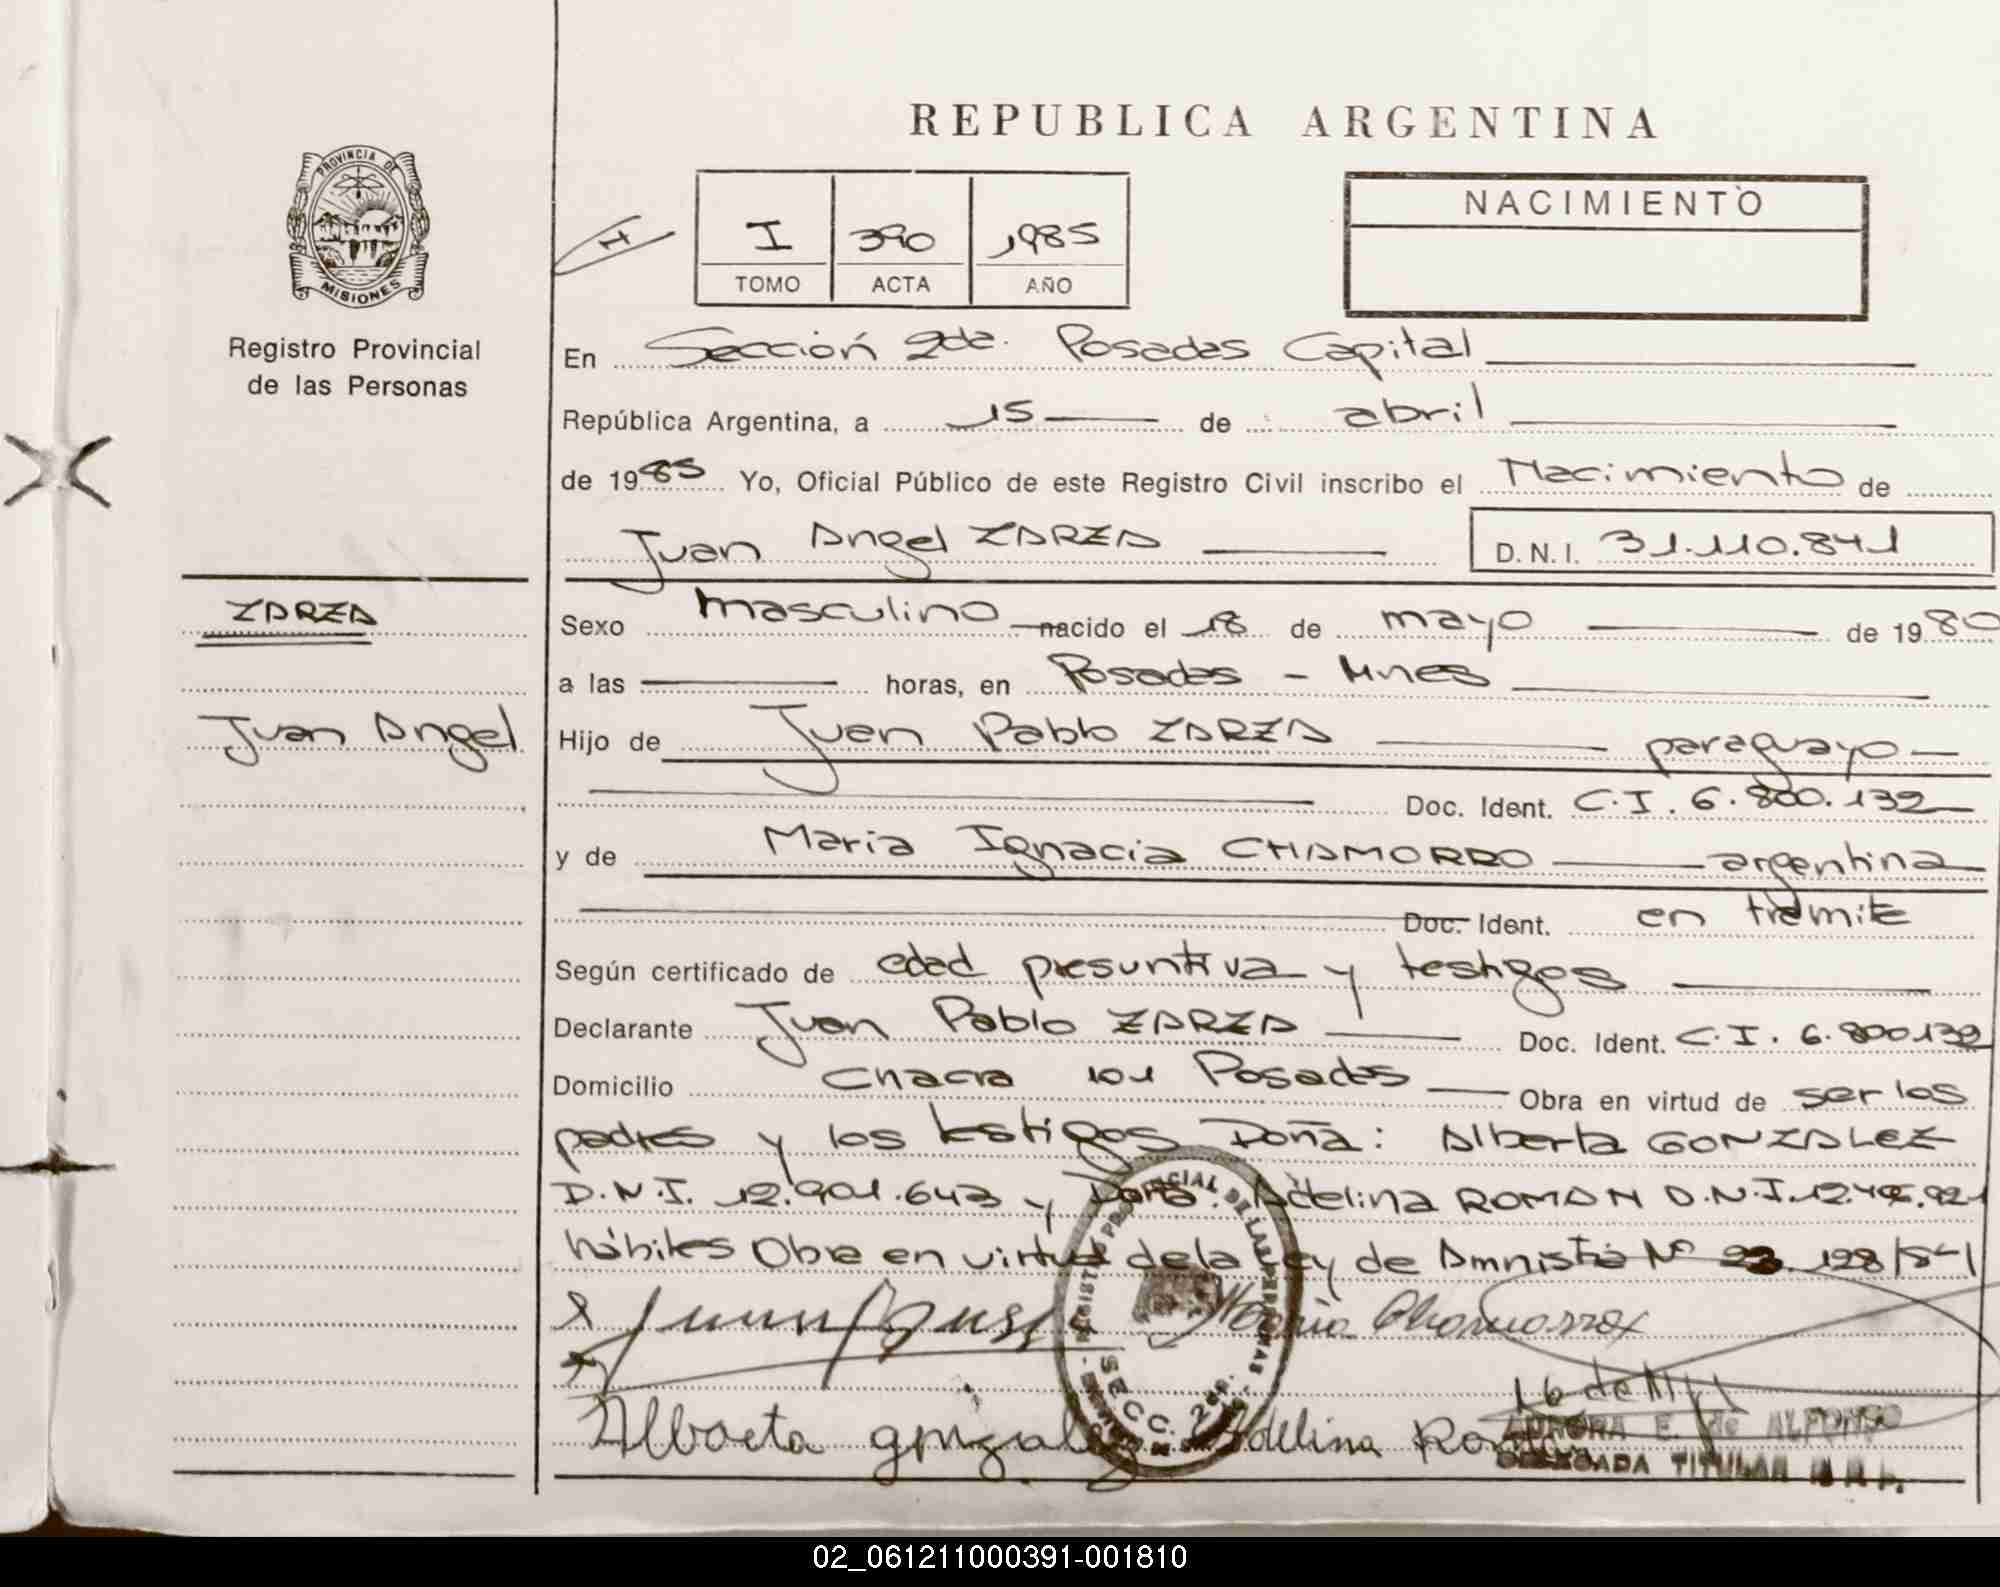 REPUBLICA ARGENTINA
PROVINCIA DE
MISIONES
Registro Provincial
de las Personas
I 390 1985
TOMO ACTA AÑO
NACIMIENTO
En Sección 2da. Posadas Capital
República Argentina, a 15 de abril
de 1985 Yo, Oficial Público de este Registro Civil inscribo el Nacimiento de
Juan Angel ZARZA D.N.I. 31.110.841
ZARZA
Juan Angel
Sexo masculino nacido el 18 de mayo de 1980
a las horas, en Posadas - Mnes
Hijo de Juan Pablo ZARZA paraguayo
Doc. Ident. C.I. 6.800.132
y de Maria Ignacia CHAMORRO argentina
Doc. Ident. en trámite
Según certificado de edad presuntiva y testigos
Declarante Juan Pablo ZARZA Doc. Ident. C.I. 6.800.132
Domicilio Chacra 101 Posadas Obra en virtud de ser los
padres y los testigos Doña: Alberta GONZALEZ
D.N.I. 12.901.643 y Doña: Adelina ROMAN D.N.I.
hábiles Obra en virtud de la Ley de Amnistía Nº 23.128/84
Maria Chamorro
Alberta Adelina
AURORA E. de ALFONSO
TITULAR
SECC. 2da.
02_061211000391-001810